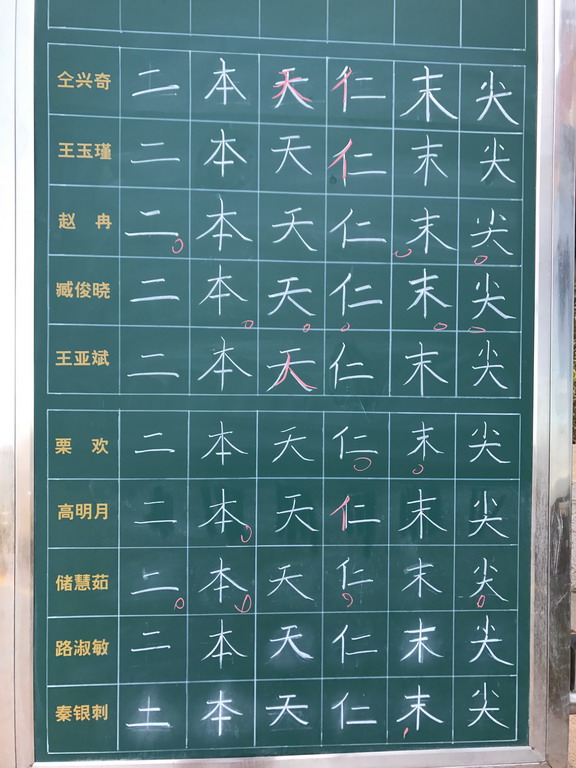 仝兴奇 二 本 天 仁 末 尖
王玉瑾 二 本 天 仁 末 尖
赵 冉 二 本 天 仁 末 尖
臧俊晓 二 本 天 仁 末 尖
王亚斌 二 本 天 仁 末 尖
栗 欢 二 本 天 仁 末 尖
高明月 二 本 天 仁 末 尖
储慧茹 二 本 天 仁 末 尖
路淑敏 二 本 天 仁 末 尖
秦银刺 土 本 天 仁 末 尖